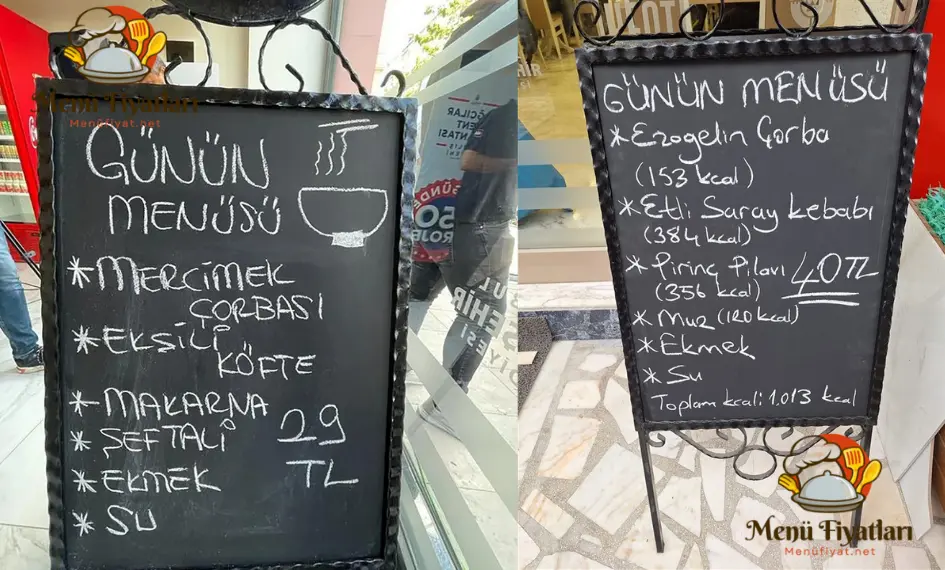 Menü Fiyatları
Menüfiyat.net
GÜNÜN
MENÜSÜ
*MERCİMEK
ÇORBASI
*EKŞİLİ
KÖFTE
*MAKARNA
*ŞEFTALİ
29
TL
*EKMEK
*SU
50
GÜNÜN MENÜSÜ
*Ezogelin Çorba
(153 kcal)
*Etli Saray Kebabı
(384 kcal)
*Pirinç Pilavı
(356 kcal)
40TL
*Muz (120 kcal)
*Ekmek
*Su
Toplam kcal: 1.013 kcal
Menü Fiyatları
Menüfiyat.net